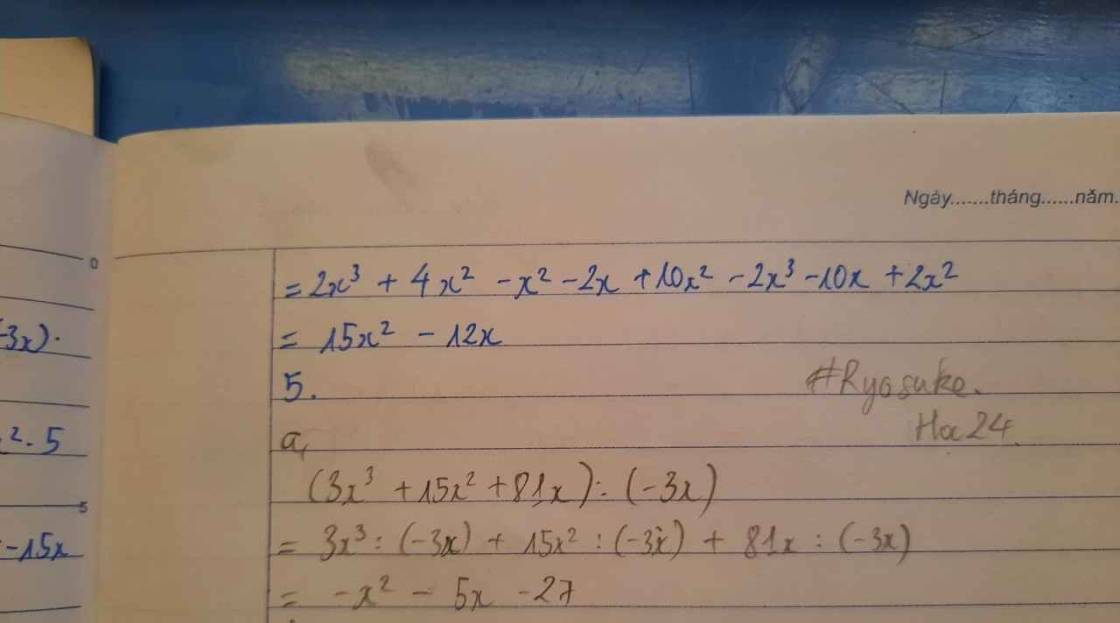 Ngày.......tháng......năm.
= 2x³ + 4x² - x² - 2x + 10x² - 2x³ - 10x + 2x²
= 15x² - 12x
5.
#Ryosuke.
Ha24.
a,
(3x³ + 15x² + 81x) : (-3x)
= 3x³ : (-3x) + 15x² : (-3x) + 81x : (-3x)
= -x² - 5x - 27
-3x).
². 5
-15x